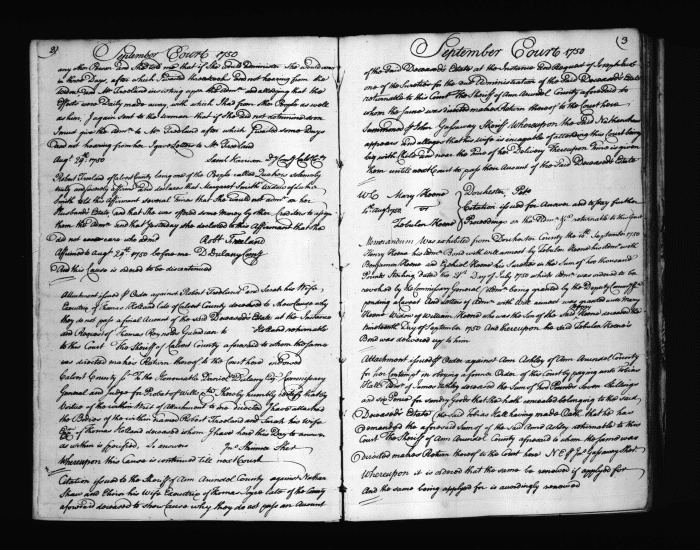 2)
September Court 1750
any other Person And she told me that if she did Administer she would come
in three Days, after which I waited three weeks And not hearing from the
Widow And Mr Freeland insisting upon the Admn and alledging that the
Effects were Daily made away, with which I had from other People as well as
him, I again sent to the Woman that if she did not Administer soon
I must give the Admn to Mr Freeland after which I waited some Days
And not hearing from her I gave Letters to Mr Freeland
Augt 29th 1750
Robert Freeland of Calvert County being one of the People called Quakers solemnly
truly and sincerely affirms and declares that Margaret Smith Widow of
Smith told this Affirmant several times that she would not Admn on her
Husbands Estate, and that she was offered some Money by other Creditors to assign
them the Admn and that Yesterday she declared to this Affirmant that she
did not care who admd
Robt Freeland
Affirmed to Augt 29th 1750 before me D Dulany Comy
And this Cause is ordered to be discontinued
Attachment issued Order against Robert Freeland and Sarah his Wife
Executrix of Thomas Holland late of Calvert County deceased to shew Cause why
they do not pass a final Account of the said Deceased's Estate at the Instance
and Request of Thomas Reynolds Guardian to Holland returnable
to this Court The Sheriff of Calvert County aforesaid to whom the same
was directed makes Return thereof to the Court here indorsed
Calvert County To the Honourable Daniel Dulany Esqr Commissary
General and Judge for Probat of Wills I hereby humbly certify that by
Vertue of the within Writ of Attachment to me directed I have attached
the Bodies of the within named Robert Freeland and Sarah his Wife
of Thomas Holland deceased whom I have here this Day to answer
as within is specified, So answers
Whereupon this Cause is continued till next Court
Citation issued to the Sheriff of Ann Arundel County against Nathan
Shaw and his Wife Executrix of Thomas Joyce late of the County
aforesaid deceased to shew Cause why they do not pass an Account
(3
September Court 1750
of the said Deceased's Estate at the Instance And Request of Joseph
one of the Sureties for the due Administration of the said Deceased's Estate
returnable to this Court The Sheriff of Ann Arundel County aforesaid to
whom the same was directed makes Return thereof to the Court here
Summoned John Gassaway Sheriff Whereupon the said
appears And alledges that his Wife is incapable of attending this Court being
big with Child And near the Time of her Delivery thereupon Time is given
them until next Court to pass their Account of the said Deceased's Estate
Mary Keene
vs
Zebulon Keene
Dorchester
Citation issued for Answer and to stay further
Proceedings on the Admn returnable to this Court
Memorandum Was exhibited from Dorchester County the 4th September 1750
Henry Keene his Admn Bond with will annexed by Zebulon Keene his Admr with
Benjamin Keene and Zachariah Keene his Sureties in the Sum of two thousand
Pounds Sterling Dated the 21st Day of July 1750 which Admn was ordered to be
revoked by the Commissary General, Admn being granted by the Deputy Commissary
pending a Caveat And Letters of Admn with Will annexed was granted unto Mary
Keene Widow of William Keene who was the Son of the said Keene deceased the
Nineteenth Day of September 1750 And thereupon the said Zebulon Keene's
Bond was delivered up to him
Attachment issued Order against Ann Ashby of Ann Arundel County
for her Contempt in obeying a former Order of this Court paying unto Tobias
Hall Admr of James Ashby deceased the Sum of Pounds Seven shillings
and six Pence for sundry Goods that she hath concealed belonging to the said
Deceased's Estate, the said Tobias Hall having made Oath that he has
Demanded the aforesaid Sum of the said Ann Ashby returnable to this
Court The Sheriff of Ann Arundel County aforesaid to whom the same was
directed makes Return thereof to the Court here N E Jno Gassaway Shert
Whereupon it is ordered that the same be renewed if applyed for
And the same being applyed for is accordingly renewed